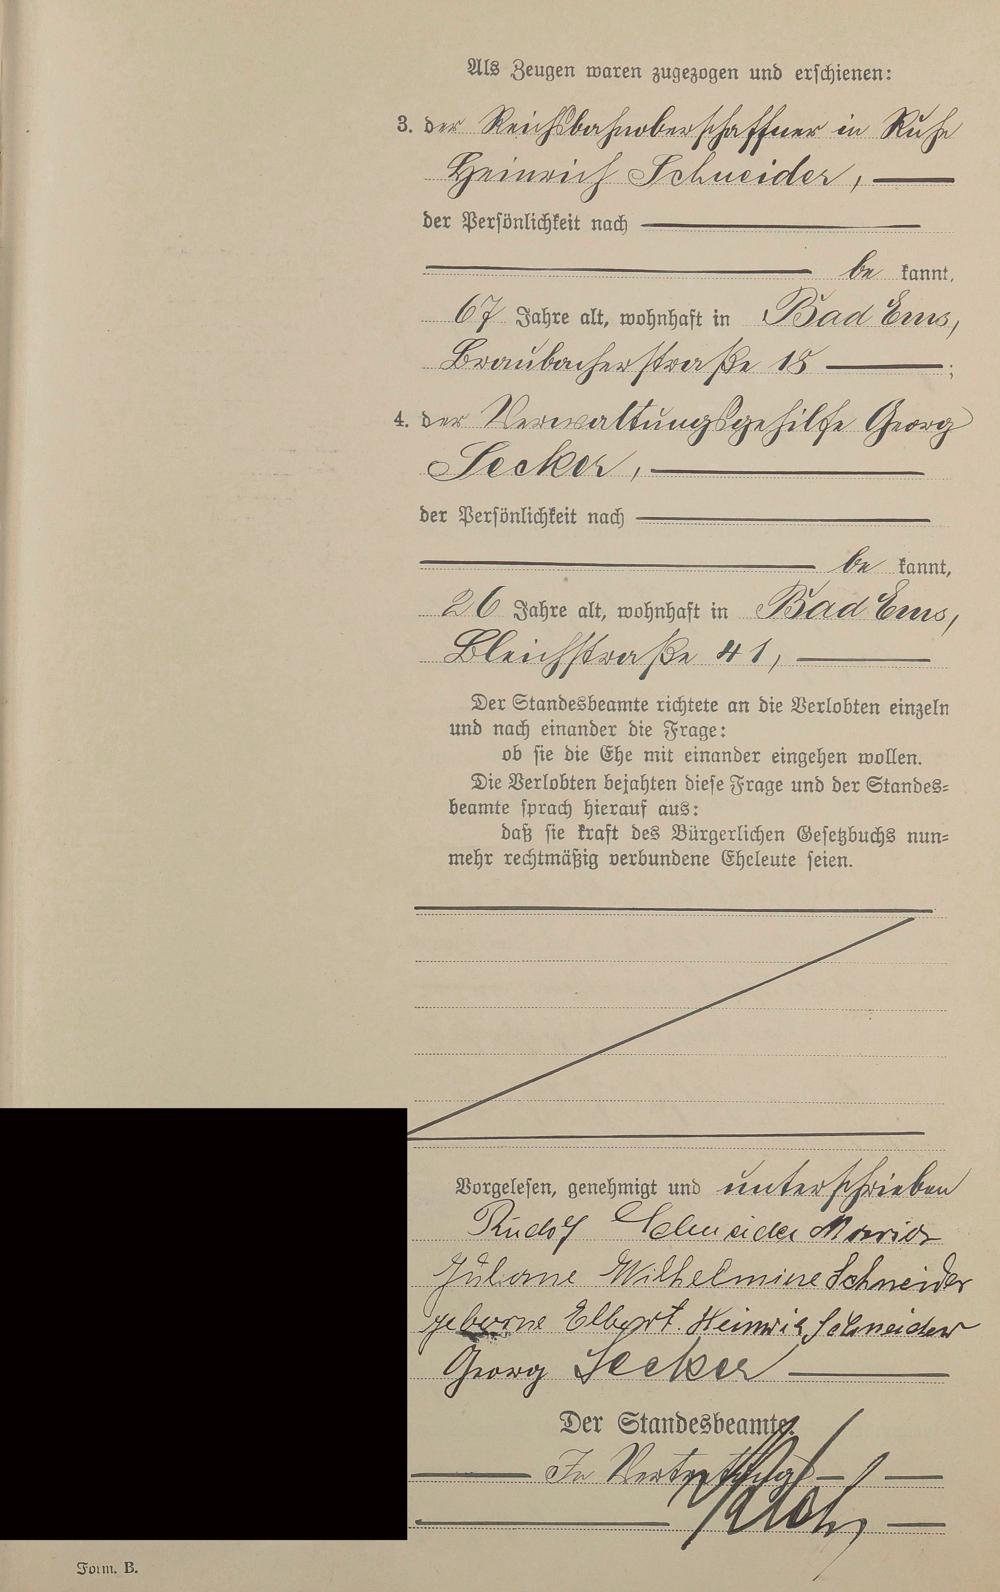 Als Zeugen waren zugezogen und erschienen:
3. der Reichsbahnoberschaffner in Ruhe
Heinrich Schneider,
der Persönlichkeit nach
be kannt,
67 Jahre alt, wohnhaft in Bad Ems,
Braubacherstraße 18 ;
4. der Verwaltungsgehilfe Georg
Secker,
der Persönlichkeit nach
be kannt,
26 Jahre alt, wohnhaft in Bad Ems,
Bleichstraße 41,
Der Standesbeamte richtete an die Verlobten einzeln
und nach einander die Frage:
ob sie die Ehe mit einander eingehen wollen.
Die Verlobten bejahten diese Frage und der Standes-
beamte sprach hierauf aus:
daß sie kraft des Bürgerlichen Gesetzbuchs nun-
mehr rechtmäßig verbundene Eheleute seien.
Vorgelesen, genehmigt und unterschrieben
Rudolf Schneider Maria
Juliane Wilhelmine Schneider
geborne Elbert Heinrich Schneider
Georg Secker
Der Standesbeamte.
In Vertretung
Form. B.